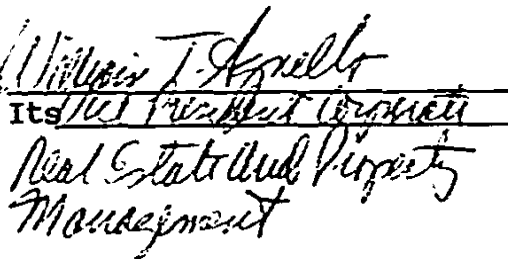 William T. Agnello
Its Vice President Corporate
Real Estate and Property
Management